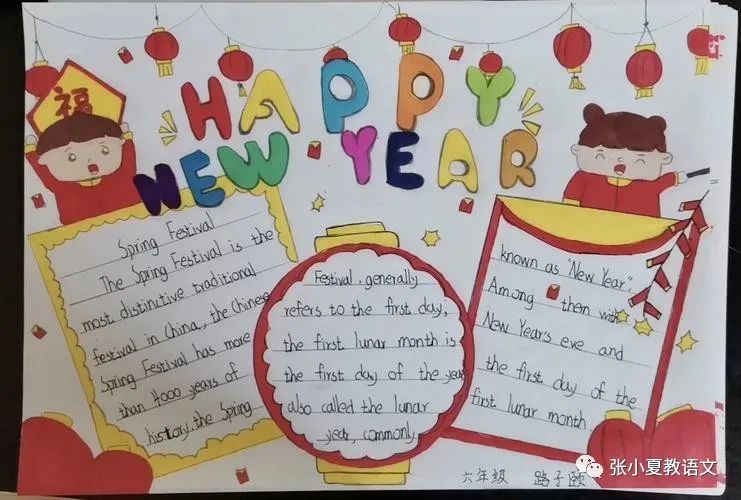 HAPPY
NEW YEAR
福
Spring Festival
The Spring Festival is the
most distinctive traditional
festival in China, the Chinese
Spring Festival has more
than 4000 years of
history. the Spring
Festival, generally
refers to the first day,
the first lunar month is
the first day of the year
also called the lunar
year, commonly
known as "New Year".
Among them with
New Year's eve and
the first day of the
first lunar month.
六年级 路子颐
张小夏教语文